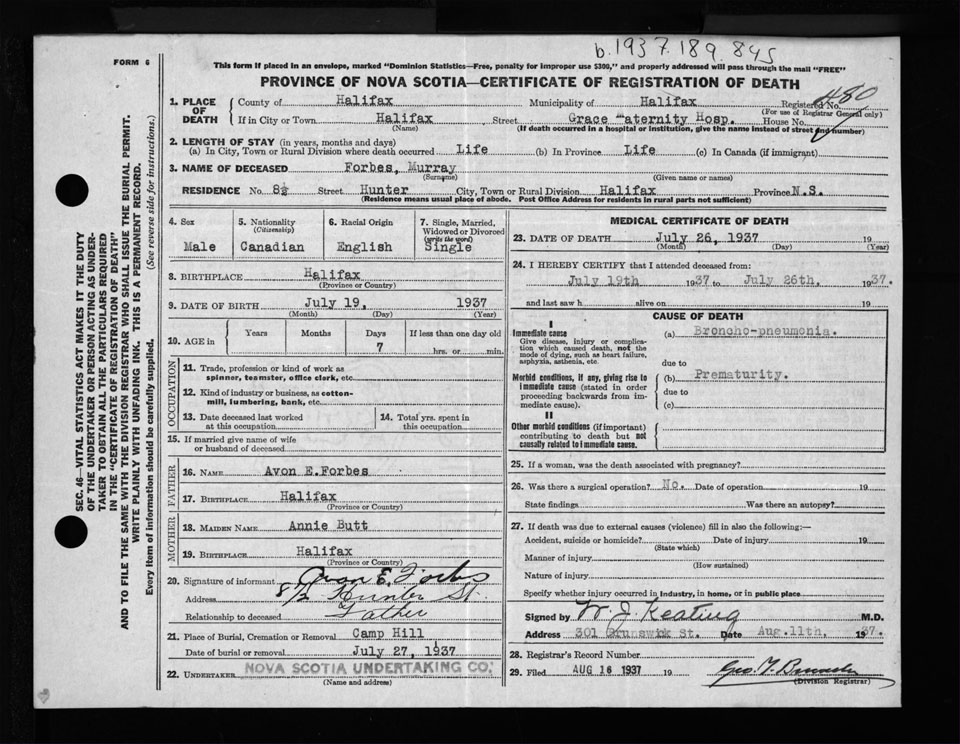 b.1937.189.845
FORM 6
This form if placed in an envelope, marked "Dominion Statistics—Free, penalty for improper use $300," and properly addressed will pass through the mail "FREE"
PROVINCE OF NOVA SCOTIA—CERTIFICATE OF REGISTRATION OF DEATH
1. PLACE OF DEATH County of Halifax Municipality of Halifax Registered No. 480
(For use of Registrar General only)
If in City or Town Halifax Street Grace Maternity Hosp. House No.
(Name) (If death occurred in a hospital or institution, give the name instead of street and number)
2. LENGTH OF STAY (in years, months and days)
(a) In City, Town or Rural Division where death occurred Life (b) In Province Life (c) In Canada (if immigrant)
3. NAME OF DECEASED Forbes, Murray
(Surname) (Given name or names)
RESIDENCE No. 8½ Street Hunter City, Town or Rural Division Halifax Province N.S.
(Residence means usual place of abode. Post Office Address for residents in rural parts not sufficient)
4. Sex Male
5. Nationality (Citizenship) Canadian
6. Racial Origin English
7. Single, Married, Widowed or Divorced (write the word) Single
8. BIRTHPLACE Halifax
(Province or Country)
9. DATE OF BIRTH July 19, 1937
(Month) (Day) (Year)
10. AGE in Years Months Days If less than one day old
7 hrs. or min.
OCCUPATION
11. Trade, profession or kind of work as
spinner, teamster, office clerk, etc.
12. Kind of industry or business, as cotton-
mill, lumbering, bank, etc.
13. Date deceased last worked
at this occupation
14. Total yrs. spent in
this occupation
15. If married give name of wife
or husband of deceased
FATHER
16. NAME Avon E.Forbes
17. BIRTHPLACE Halifax
(Province or Country)
MOTHER
18. MAIDEN NAME Annie Butt
19. BIRTHPLACE Halifax
(Province or Country)
20. Signature of informant Avon E. Forbes
Address 8½ Hunter St.
Relationship to deceased Father
21. Place of Burial, Cremation or Removal Camp Hill
Date of burial or removal July 27, 1937
22. UNDERTAKER NOVA SCOTIA UNDERTAKING CO.
(Name and address)
MEDICAL CERTIFICATE OF DEATH
23. DATE OF DEATH July 26, 1937 19
(Month) (Day) (Year)
24. I HEREBY CERTIFY that I attended deceased from:
July 19th 1937 to July 26th, 1937.
and last saw h alive on 19
CAUSE OF DEATH
I
Immediate cause
Give disease, injury or complica-
tion which caused death, not the
mode of dying, such as heart failure,
asphyxia, asthenia, etc.
(a) Broncho-pneumonia.
due to
Morbid conditions, if any, giving rise to
immediate cause (stated in order
proceeding backwards from im-
mediate cause).
(b) Prematurity.
due to
(c)
II
Other morbid conditions (if important)
contributing to death but not
causally related to immediate cause.
25. If a woman, was the death associated with pregnancy?
26. Was there a surgical operation? No. Date of operation 19
State findings Was there an autopsy?
27. If death was due to external causes (violence) fill in also the following:—
Accident, suicide or homicide? Date of injury 19
(State which)
Manner of injury
(How sustained)
Nature of injury
Specify whether injury occurred in industry, in home, or in public place
Signed by W. J. Keating M.D.
Address 301 Brunswick St. Date Aug.11th, 1937.
28. Registrar's Record Number
29. Filed AUG 16 1937 19
(Division Registrar)
SEC. 46—VITAL STATISTICS ACT MAKES IT THE DUTY
OF THE UNDERTAKER OR PERSON ACTING AS UNDER-
TAKER TO OBTAIN ALL THE PARTICULARS REQUIRED
IN THE "CERTIFICATE OF REGISTRATION OF DEATH"
AND TO FILE THE SAME WITH THE DIVISION REGISTRAR WHO SHALL ISSUE THE BURIAL PERMIT.
WRITE PLAINLY WITH UNFADING INK. THIS IS A PERMANENT RECORD.
Every item of information should be carefully supplied. (See reverse side for instructions.)